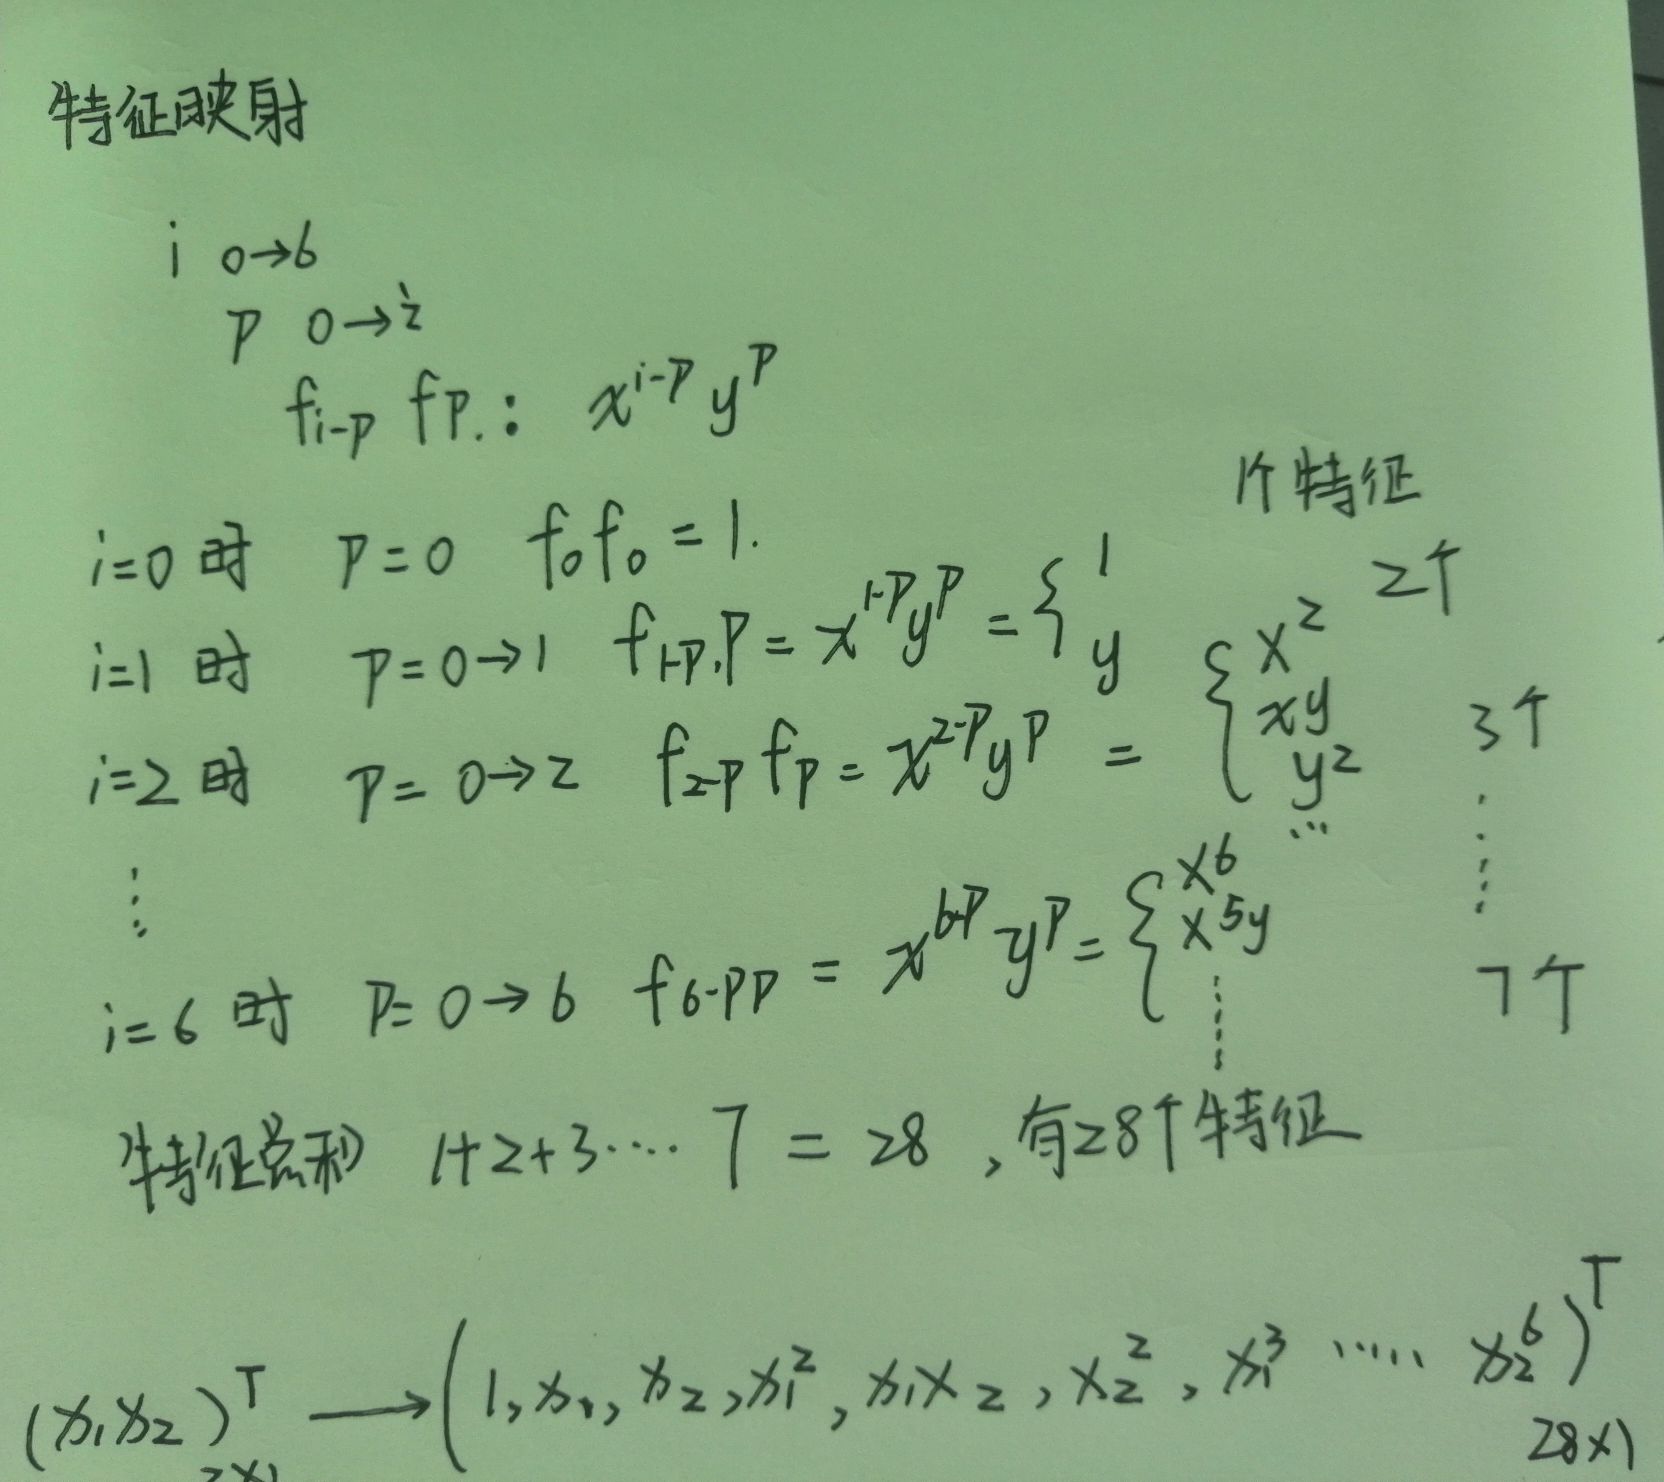 特征映射
i 0→6
p 0→i
f_{i-p} f_{p}.: x^{i-p} y^{p}
1个特征
i=0 时 P=0 f_0 f_0 = 1.
2个
i=1 时 P=0→1 f_{1-P,P} = x^{1-P} y^{P} = { 1
y
i=2 时 P=0→2 f_{2-P} f_P = x^{2-P} y^{P} = { x^2
xy
y^2
3个
...
⋮
i=6 时 P=0→6 f_{6-PP} = x^{6-P} y^{P} = { x^6
x^5y
⋮
7个
特征总和 1+2+3····7 = 28 ,有28个特征
(x_1 x_2)^T_{2×1} → (1, x_1, x_2, x_1^2, x_1x_2, x_2^2, x_1^3 ····· x_2^6)^T_{28×1}